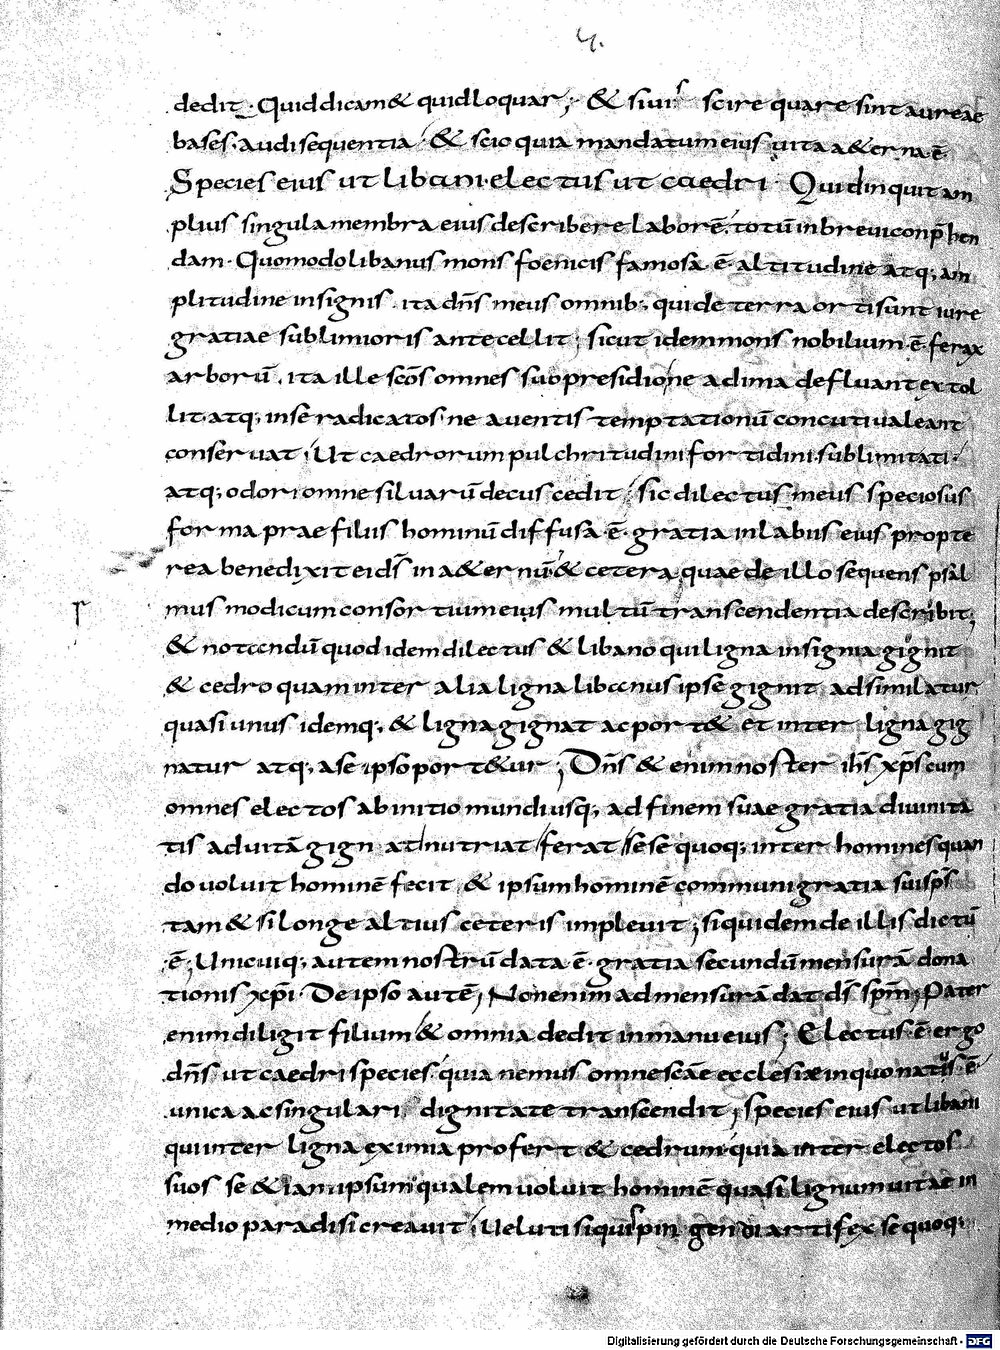 dedit. Quid dicam & quid loquar; & si uis scire quare sint aureae
bases. audi sequentia. & scio quia mandatum eius uita a&erna ē.
Species eius ut libani. electus ut caedri. Quid inquit am
plius singula membra eius describere laborē. totū in breui conp̄hen
dam. Quomodo libanus mons foenicis famosa ē. altitudine atq; am
plitudine insignis. ita dn̄s meus omnib; qui de terra orti sunt iure
gratiae sublimioris antecellit; sicut idem mons nobilium ē ferax
arborū. ita ille sc̄os omnes suo presidio ne ad ima defluant extol
lit. atq; in se radicatos. ne a uentis temptationū concuti ualeant
conseruat; Ut caedrorum pulchritudini fortidini. sublimitati.
atq; odori omne siluarū decus cedit; sic dilectus meus speciosus
forma prae filiis hominū diffusa ē gratia in labiis eius propte
rea benedixit eī ds̄ in a&ernū & cetera quae de illo sequens psal
mus modicum consortium eius multū transcendentia describit;
& notandū quod idem dilectus & libano qui ligna insignia gignit
& cedro quam inter alia ligna libanus ipse gignit adsimilatur
quasi unus idemq; & ligna gignat ac port& et inter ligna gig
natur atq; a se ipso port&ur; Dn̄s & enim noster ihs̄ xp̄s cum
omnes electos ab initio mundi usq; ad finem suae gratia diuinita
tis ad uitā gignat nutriat ferat sese quoq; inter homines quan
do uoluit hominē fecit. & ipsum hominē communi gratia sui sp̄s
tam & si longe altius ceteris impleuit; siquidem de illis dictū
ē; Unicuiq; autem nostrū data ē gratia secundū mensurā dona
tionis xp̄i. De ipso autē; Non enim ad mensurā dat ds̄ sp̄m; Pater
enim diligit filium & omnia dedit in manu eius; Electus ē ergo
dn̄s ut caedri species quia nemus omne sc̄ae ecclesiae in quo natus ē
unica ac singulari dignitate transcendit; species eius ut libani
qui inter ligna eximia profert & cedrum quia inter electos
suos se &iam ipsum qualem uoluit hominē quasi lignum uitae in
medio paradisi creauit; Ueluti si quis pingendi artifex se quoq;
Digitalisierung gefördert durch die Deutsche Forschungsgemeinschaft - DFG